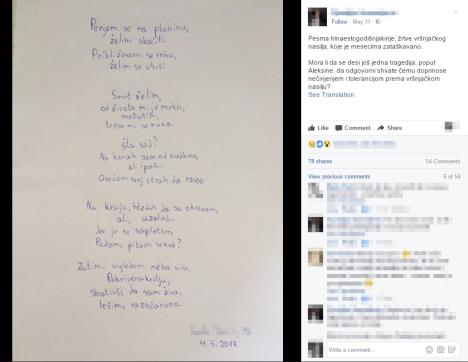 Penjem se na planinu,
želim skočiti.
Približavam se vrhu,
želim se ubit!
Smrt želim,
od života mi je muka,
tresu mi se ruke.
šta sad?
Na korak sam od sudbine,
ali ipak...
Osećam svoj strah da raste.
Na kraju, htedoh da se okrenem
ali, uzalud...
Jer ja se sapletem
Padam, pitam se kad?
Zatim, ugledah neba siva,
shvativši da sam živa,
ležim, razočarana.
11. 5. 2017.
Follow · May 11
Pesma trinaestogodišnjakinje, žrtve vršnjačkog
nasilja, koje je mesecima zataškavano.
Mora li da se desi još jedna tragedija, poput
Aleksine, da odgovorni shvate čemu doprinose
nečinjenjem i tolerancijom prema vršnjačkom
nasilju?
See Translation
Like Comment Share
78 shares 54 Comments
View previous comments 6 of 54
Write a comment...